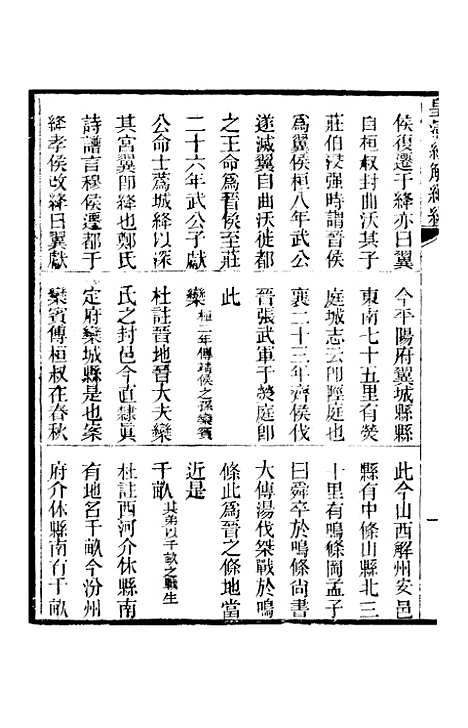 皇清經解續編
侯復遷于絳亦曰翼
自桓叔封曲沃其子
莊伯浸强時謂晉侯
為翼侯桓八年武公
遂滅翼自曲沃徙都
之王命為晉侯至莊
二十六年武公子獻
公命士蒍城絳以深
其宮翼即絳也鄭氏
詩譜言穆侯遷都于
絳孝侯改絳曰翼獻
今平陽府翼城縣縣
東南七十五里有熒
庭城志云即陘庭也
襄二十三年齊侯伐
晉張武軍于熒庭即
此
欒桓二年傳靖侯之孫欒賓
杜註晉地晉大夫欒
氏之封邑今直隸真
定府欒城縣是也案
欒賓傅桓叔在春秋
此今山西解州安邑
縣有中條山縣北三
十里有鳴條岡孟子
曰舜卒於鳴條尚書
大傳湯伐桀戰於鳴
條此為晉之條地當
近是
千畝其弟以千畝之戰生
杜註西河介休縣南
有地名千畝今汾州
府介休縣南有千畝
一